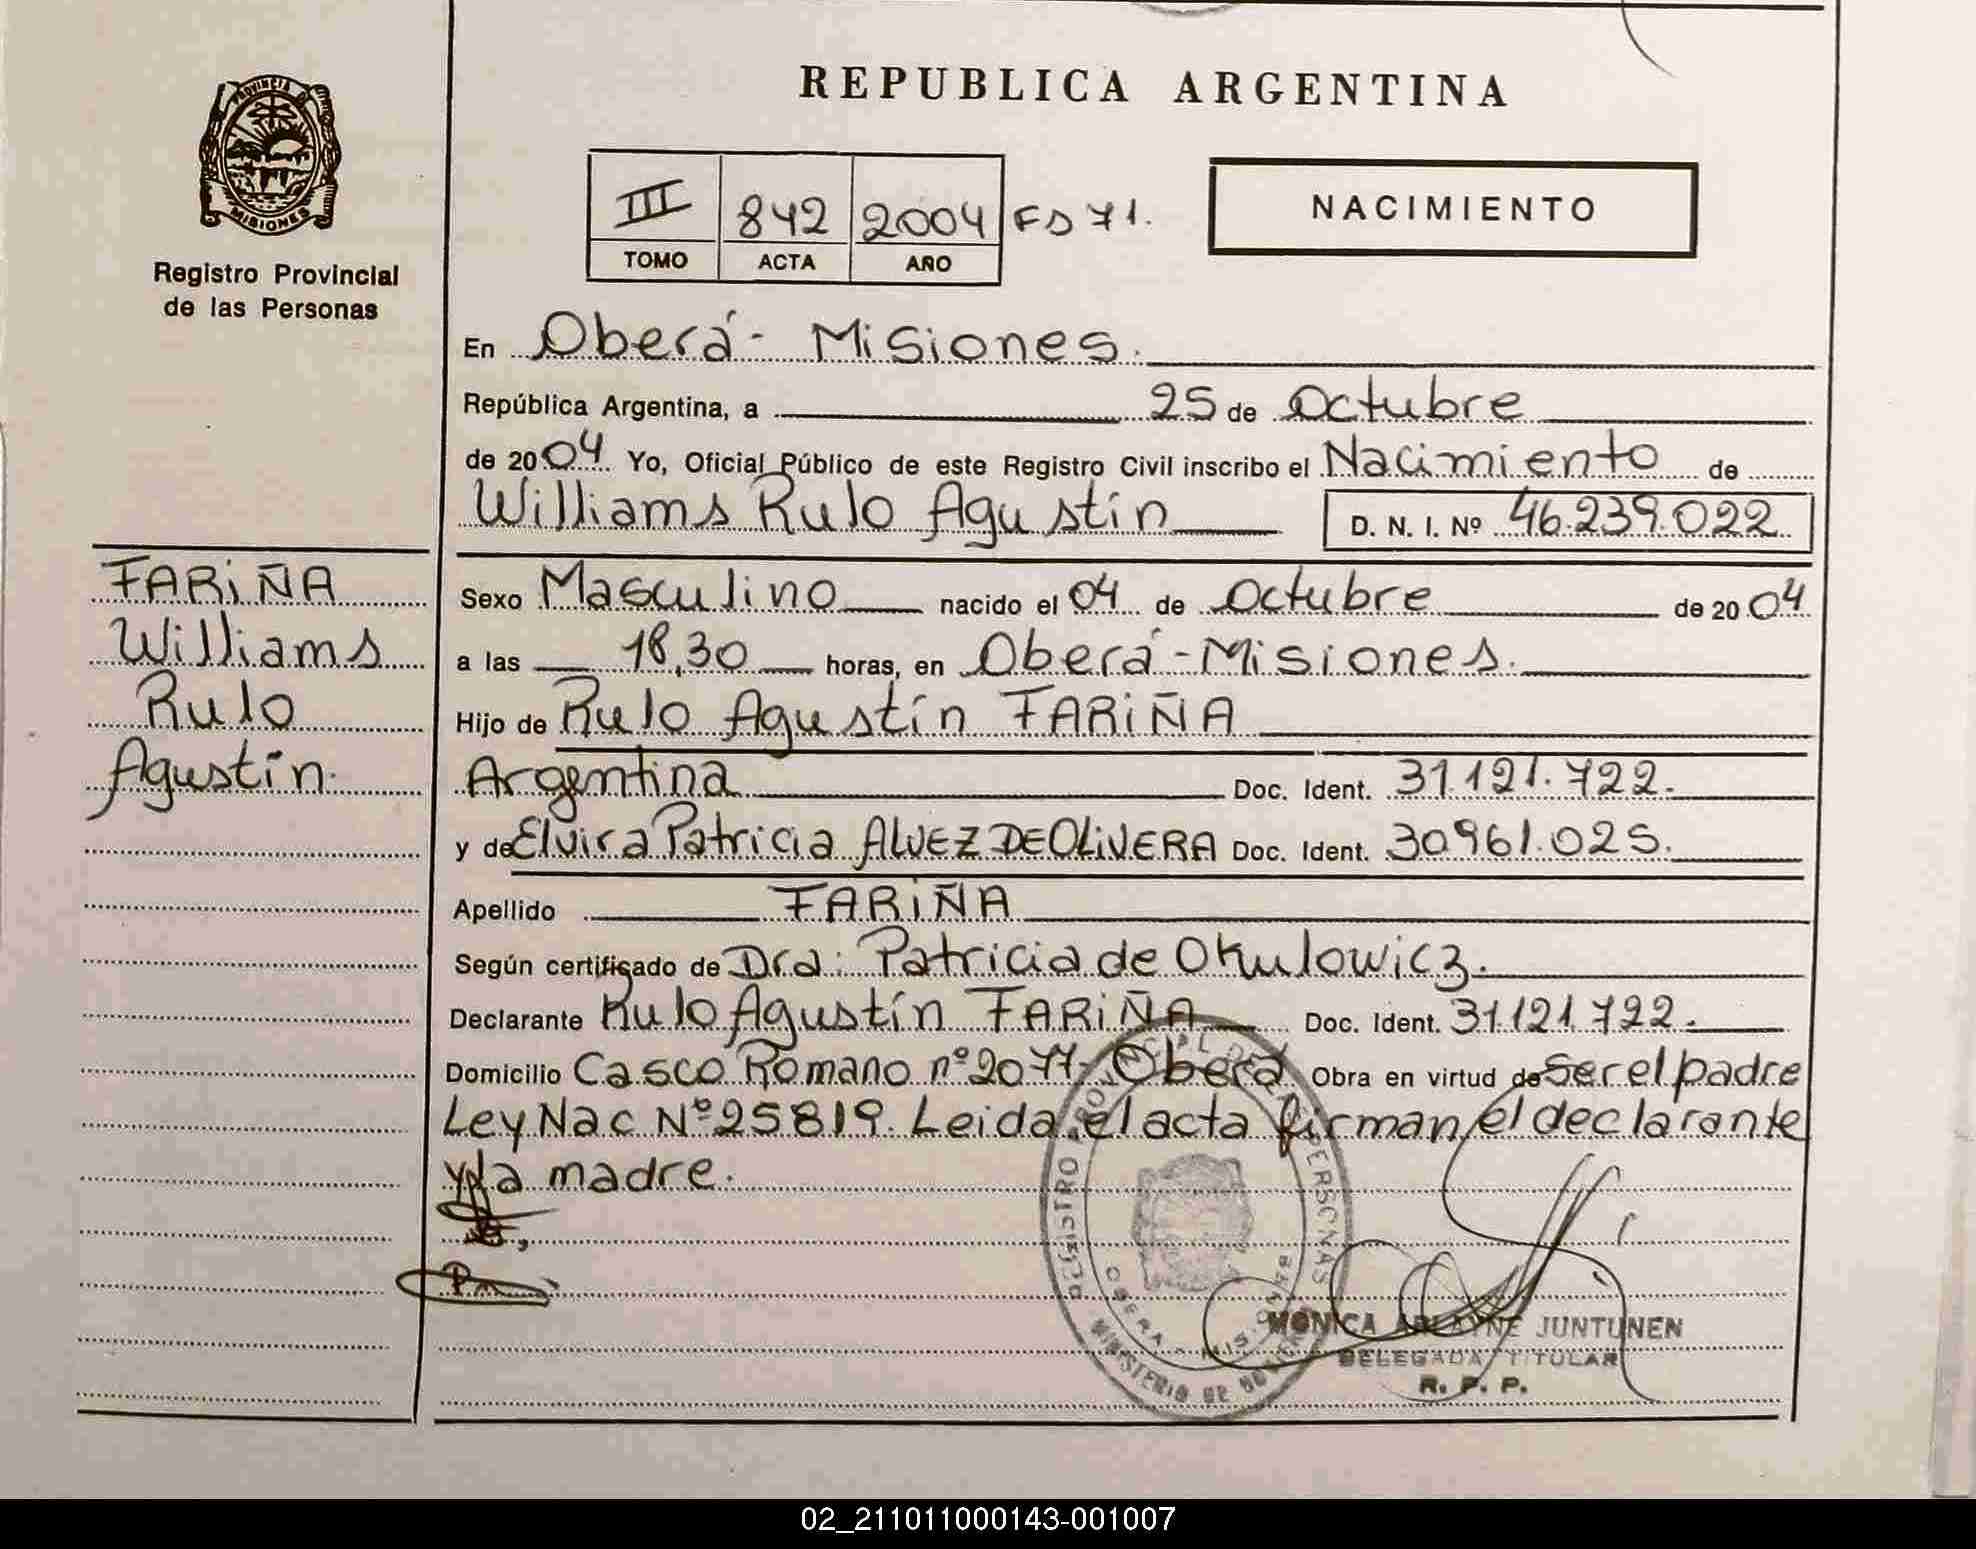 REPUBLICA ARGENTINA
PROVINCIA DE
MISIONES
Registro Provincial
de las Personas
III 842 2004 FD 71.
TOMO ACTA AÑO
NACIMIENTO
En Oberá - Misiones.
República Argentina, a 25 de Octubre
de 2004 Yo, Oficial Público de este Registro Civil inscribo el Nacimiento de
Williams Rulo Agustín D. N. I. Nº 46.239.022
FARIÑA
Williams
Rulo
Agustín.
Sexo Masculino nacido el 04 de Octubre de 2004
a las 18,30 horas, en Oberá - Misiones.
Hijo de Rulo Agustín FARIÑA
Argentina Doc. Ident. 31.121.722.
y de Elvira Patricia ALVEZ DE OLIVERA Doc. Ident. 30961.025.
Apellido FARIÑA
Según certificado de Dra: Patricia de Okulowicz.
Declarante Rulo Agustín FARIÑA Doc. Ident. 31.121.722.
Domicilio Casco Romano nº 2077- Oberá Obra en virtud de Ser el padre
Ley Nac Nº 25819. Leida el acta firman el declarante
y la madre.
MONICA ARLAYNE JUNTUNEN
DELEGADA TITULAR
R. P. P.
02_211011000143-001007